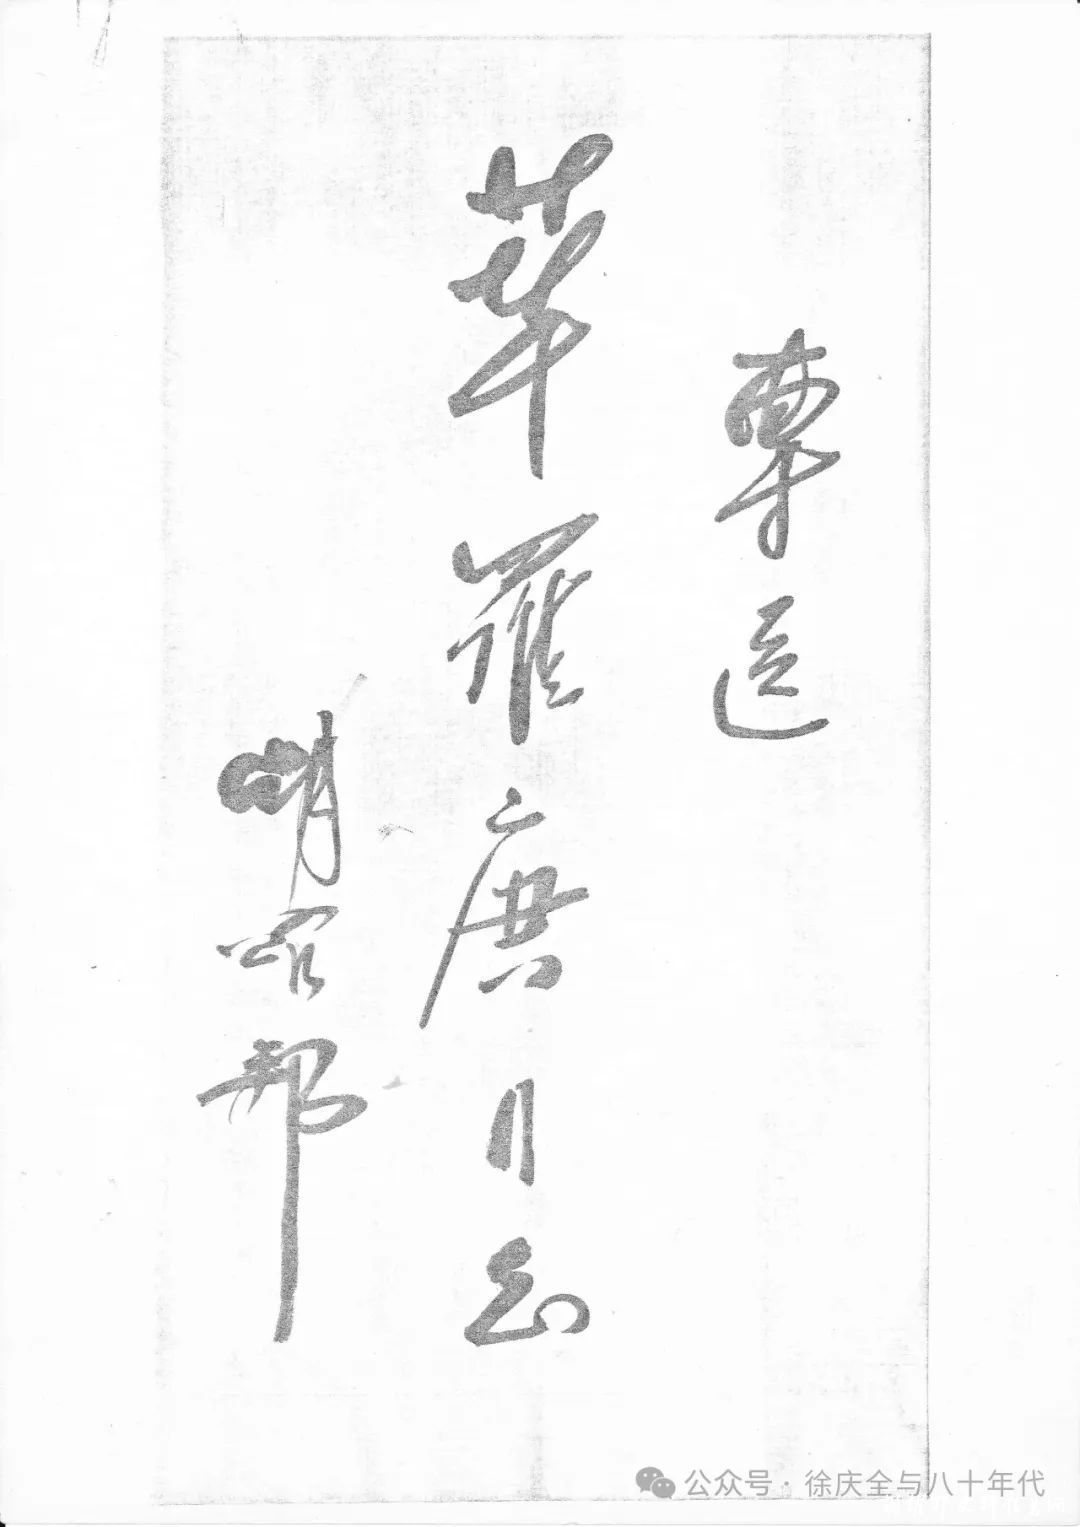 專送
華羅庚同志
胡耀邦
公众号·徐庆全与八十年代